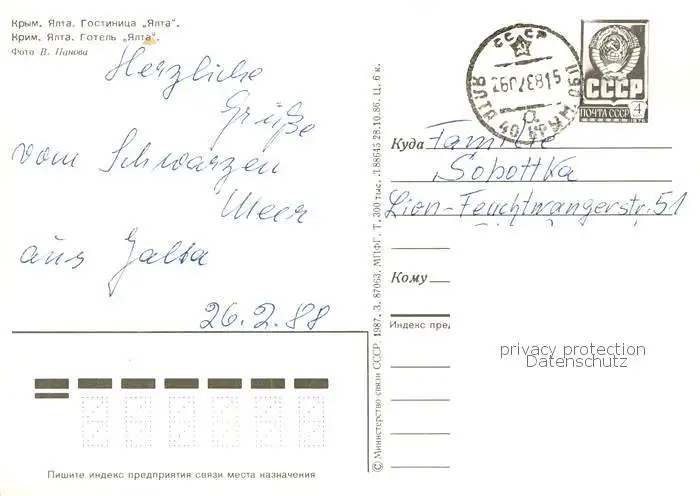 Крым. Ялта. Гостиница „Ялта".
Крим. Ялта. Готель „Ялта".
Фото В. Панова
Herzliche
Grüße
vom Schwarzen
Meer
aus Jalta
26.2.88
Пишите индекс предприятия связи места назначения
© Министерство связи СССР, 1987, З. 87063, МПФГ, Т. 300 тыс. Л 88645 28.10.86. Ц. 6 к.
СССР
ЯЛТА 40 КРЫМ. ОБЛ
СССР
ПОЧТА СССР 4
Куда
Familie
Sobottka
Lion-Feuchtwangerstr. 51
Кому
Индекс пред
privacy protection
Datenschutz